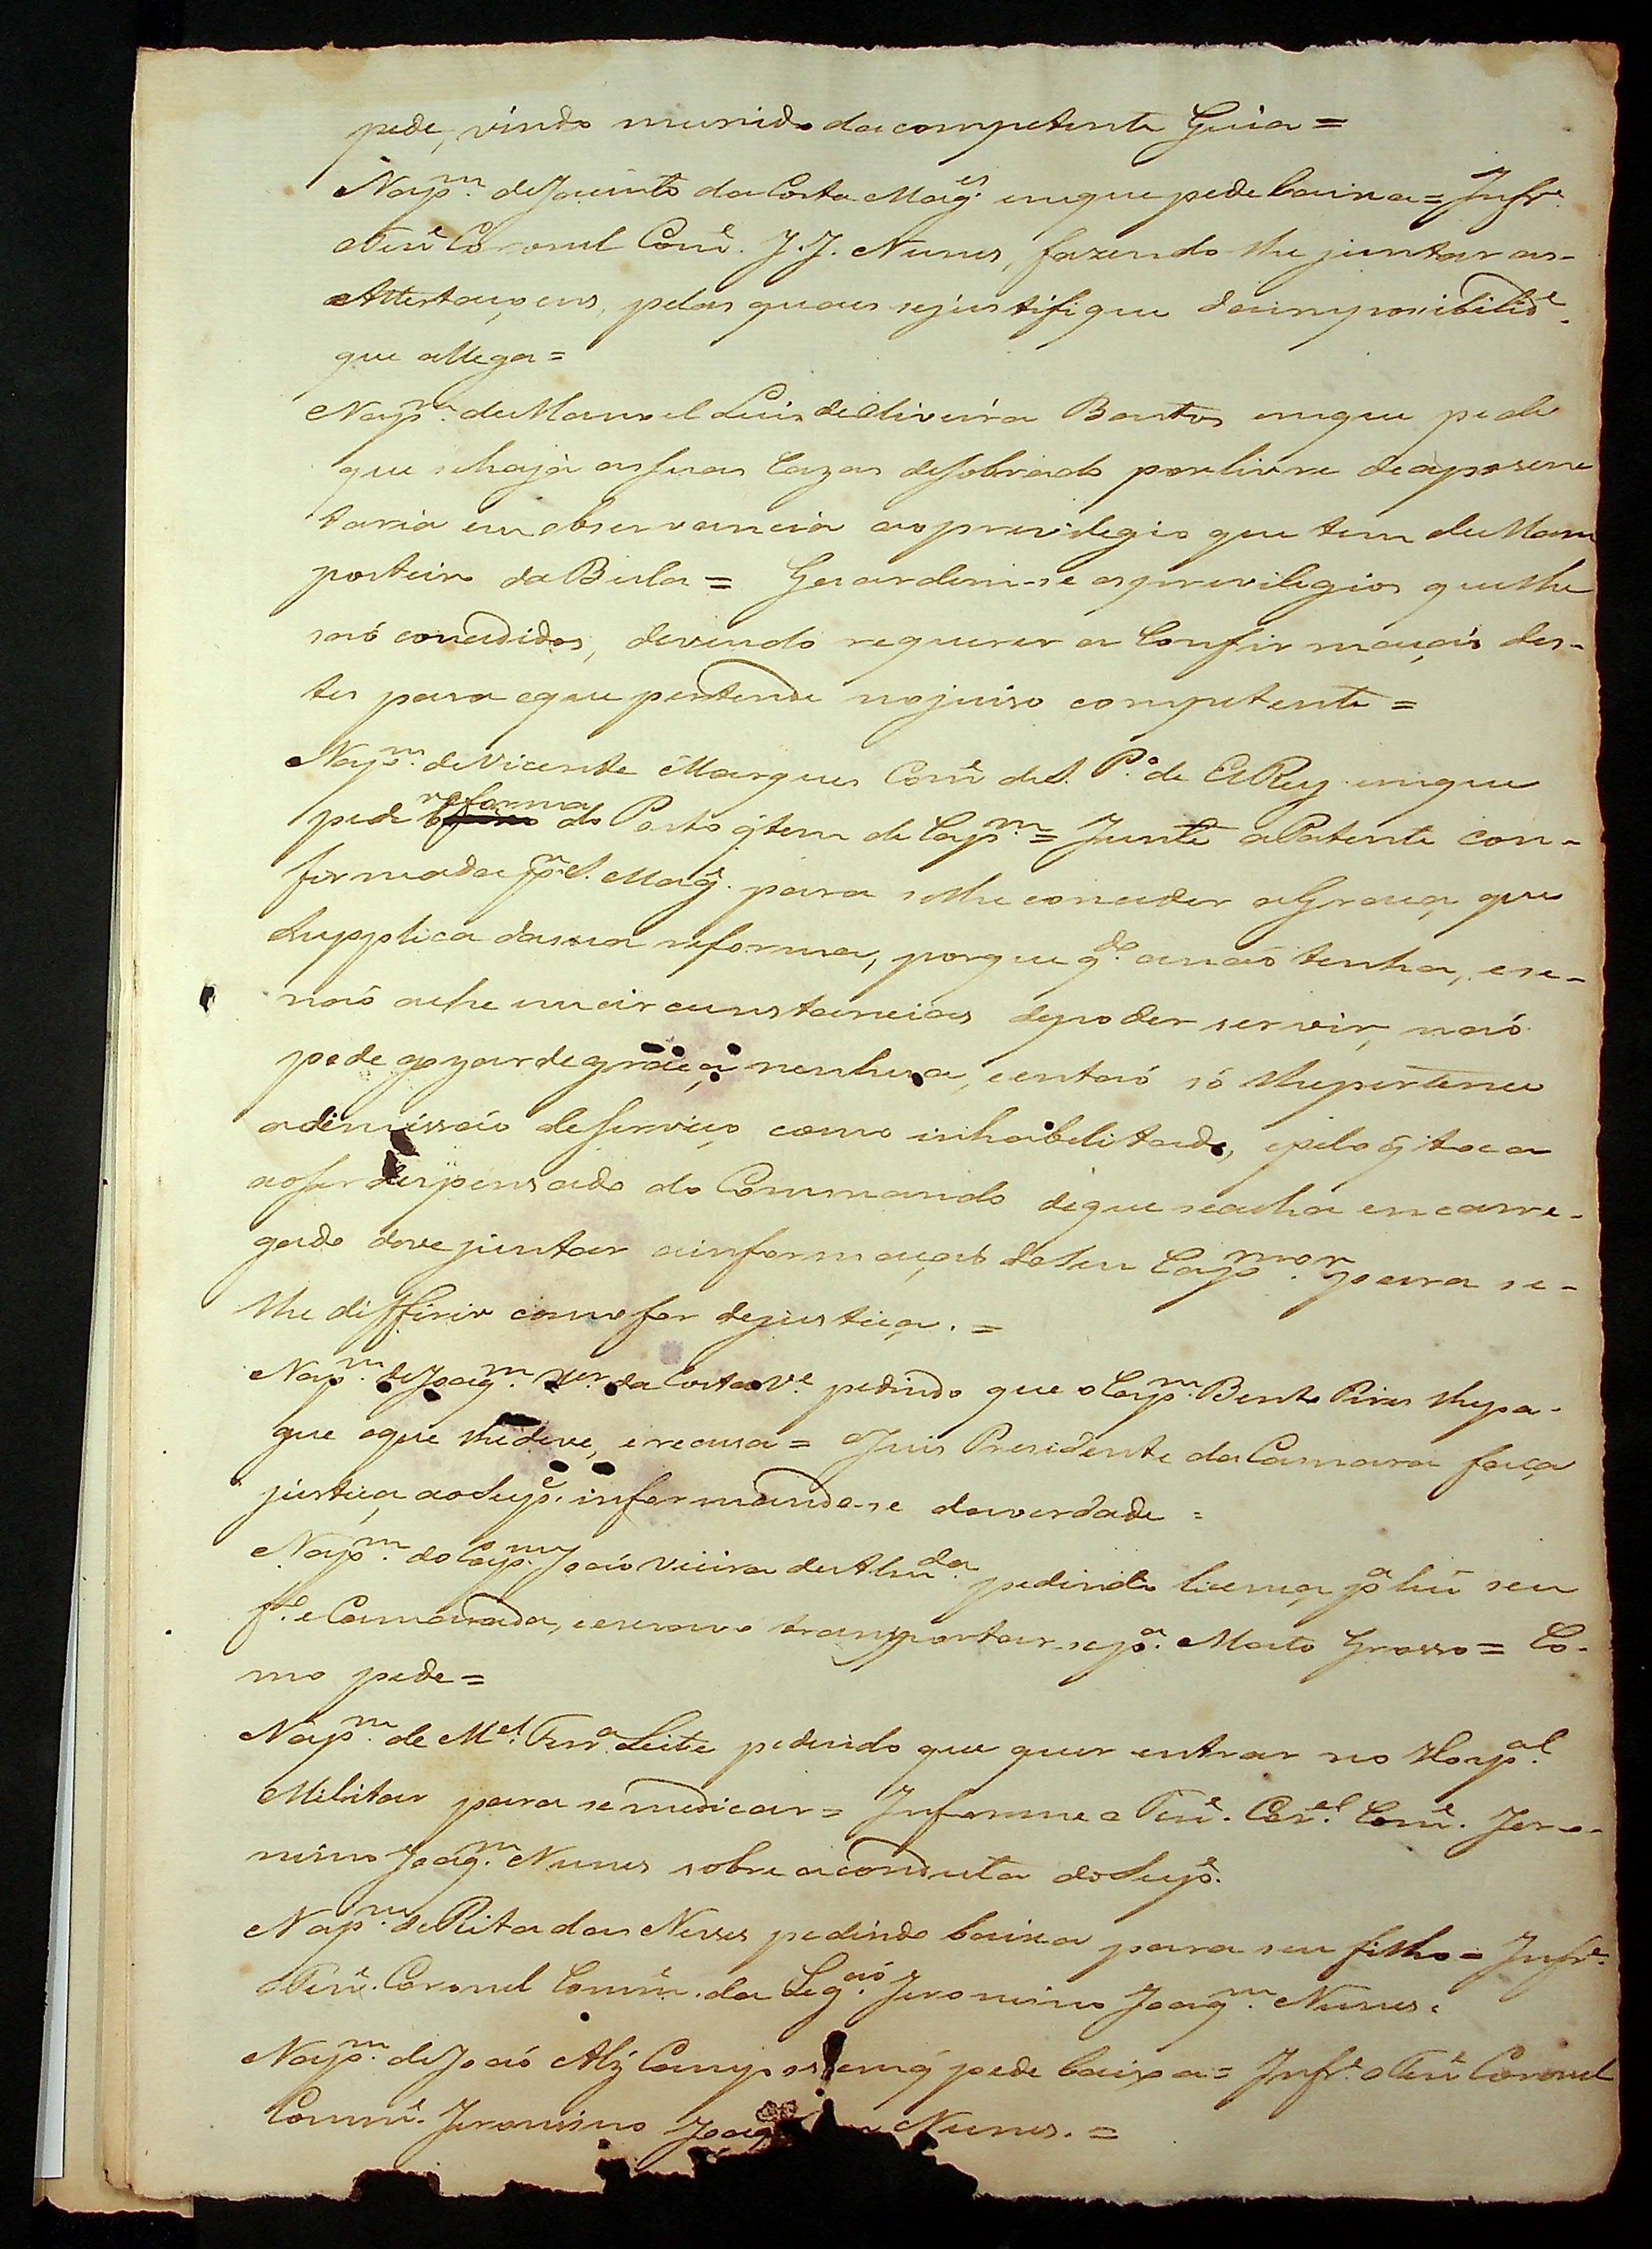 pede, vindo munido da competente Guia =
Na p.m de Jacinto da Costa Mag.es em que pede baixa = Infr.e
o Ten.e Coronel Com.e J. J. Nunes, fazendo-lhe juntar as-
Attestaçoens, pelas quaes se justifique da imposibilid.e
que allega =
Na p.m de Manoel Luis de Oliveira Bastos em que pede
que se haja as suas Cazas de sobrado por livre de aposen
taria em observancia ao previlegio que tem de Mam
posteiro da Bula = Guardem-se os previlegios que lhe
saó concedidos, devendo requerer a Confirmaçaó des-
tes para o que pertende no juiso competente =
Na p.m de Vicente Marques Com.e de S. P.o de El Rey em que
pede reforma do Posto q̃ tem de Cap.m = Junte a Patente con-
firmada p.r S. Mag.e para se lhe conceder a Graça que
Supplica da sua reforma, porque q.do a naó tenha, e se-
naó ache em circunstancias de poder servir, naó
pode gozar de graça nenhua, e entaó só lhe pertence
a demissaó do Serviço como inhabelitado, e pelo q̃ toca
ao ser despensado do Commando de que se acha encarre-
gado deve juntar a informaçaó do Seu Cap.m mor para se-
lhe differir como for de justiça. =
Na p.m de Joaq.m X.er da Costa V.e pedindo que o Cap.m Bento Pires lhe pa-
gue o que lhe deve, e recusa = O Juis Presidente da Camara faça
justiça ao Sup.e informando-se da verdade =
Na p.m do Cap.m Joaó Vieira de Alm.da pedindo licença p.a hũ seu
f.o e Camarada, e escravo transportar-se p.a Mato Grosso = Co-
mo pede =
Na p.m de M.el Ferr.a Leite pedindo que quer entrar no Hosp.al
Militar para se medicar = Informe o Ten.e Cor.el Com.e Jero-
nimo Joaq.m Nunes sobre a conduta do Sup.e
Na p.m de Rita das Neves pedindo baixa para seu filho = Infr.e
o Ten.e Coronel Comm.e da Leg.aó Jeronimo Joaq.m Nunes.
Na p.m de Joaó Alz̃ Campos em q̃ pede baixa = Infr.e o Ten.e Coronel
Comm.e Jeronimo Nunes. =